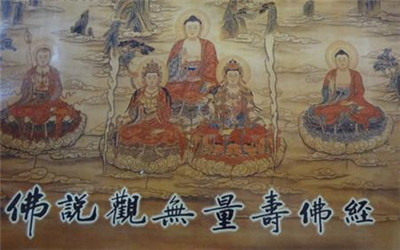 佛說觀無量壽佛經